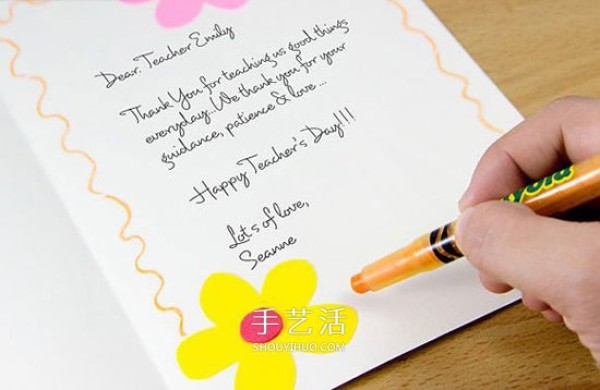 Dear, Teacher Emily
Thank You for teaching us good things
everyday...We thank you for your
guidance, patience & love ...
Happy Teacher's Day!!!
Lots of love,
Seanne
yola
手艺活
SHOUYIHUO.COM